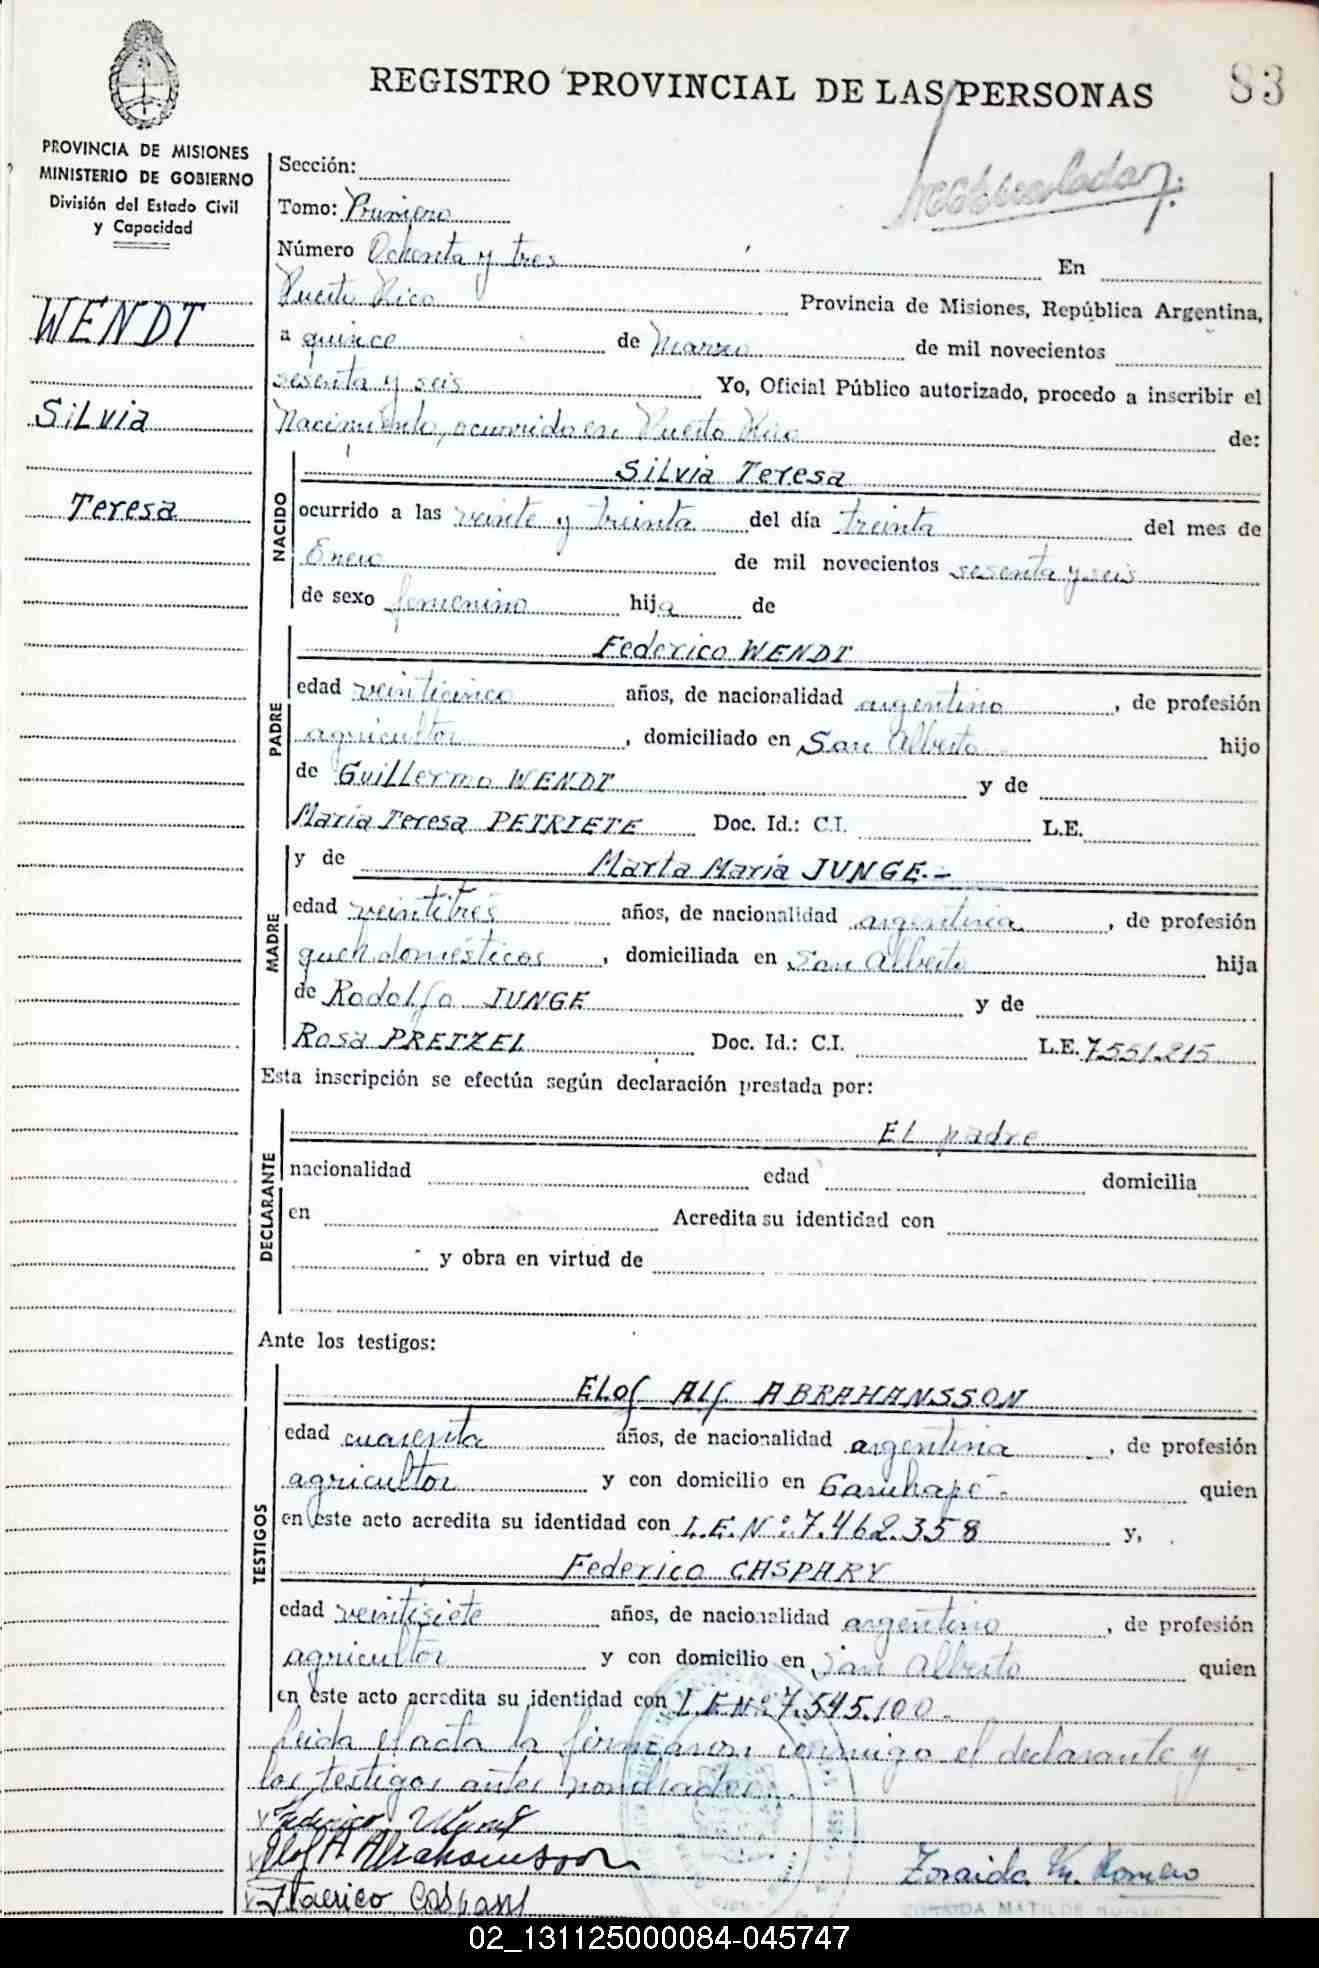 REGISTRO PROVINCIAL DE LAS PERSONAS
83
PROVINCIA DE MISIONES
MINISTERIO DE GOBIERNO
División del Estado Civil
y Capacidad
WENDT
Silvia
Teresa
Sección:
Tomo: Primero
Número Ochenta y tres En
Puerto Rico Provincia de Misiones, República Argentina,
a quince de Marzo de mil novecientos
sesenta y seis Yo, Oficial Público autorizado, procedo a inscribir el
Nacimiento, ocurrido en: Puerto Rico de:
NACIDO
Silvia Teresa
ocurrido a las veinte y treinta del día treinta del mes de
Enero de mil novecientos sesenta y seis
de sexo femenino hija de
PADRE
Federico WENDT
edad veinticinco años, de nacionalidad argentino, de profesión
agricultor, domiciliado en San Alberto hijo
de Guillermo WENDT y de
María Teresa PETRIETE Doc. Id.: C.I. L.E.
MADRE
y de Marta María JUNGE.-
edad veintitrés años, de nacionalidad argentina, de profesión
queh. domésticos, domiciliada en San Alberto hija
de Rodolfo JUNGE y de
Rosa PRETZEL Doc. Id.: C.I. L.E. 7.551.215
Esta inscripción se efectúa según declaración prestada por:
DECLARANTE
El padre
nacionalidad edad domicilia
en Acredita su identidad con
y obra en virtud de
Ante los testigos:
TESTIGOS
Elof Alf ABRAHANSSON
edad cuarenta años, de nacionalidad argentina, de profesión
agricultor y con domicilio en Garuhapé- quien
en este acto acredita su identidad con L.E.Nº:7.462.358 y,
Federico CASPARY
edad veintisiete años, de nacionalidad argentino, de profesión
agricultor y con domicilio en San Alberto quien
en este acto acredita su identidad con L.E.Nº7.545.100.-
Leida el acta la firmaron conmigo el declarante y
los testigos antes nombrados.
Federico Wendt
Elof A Abrahansson
Zoraida M. Romero
Federico Caspary
02_131125000084-045747